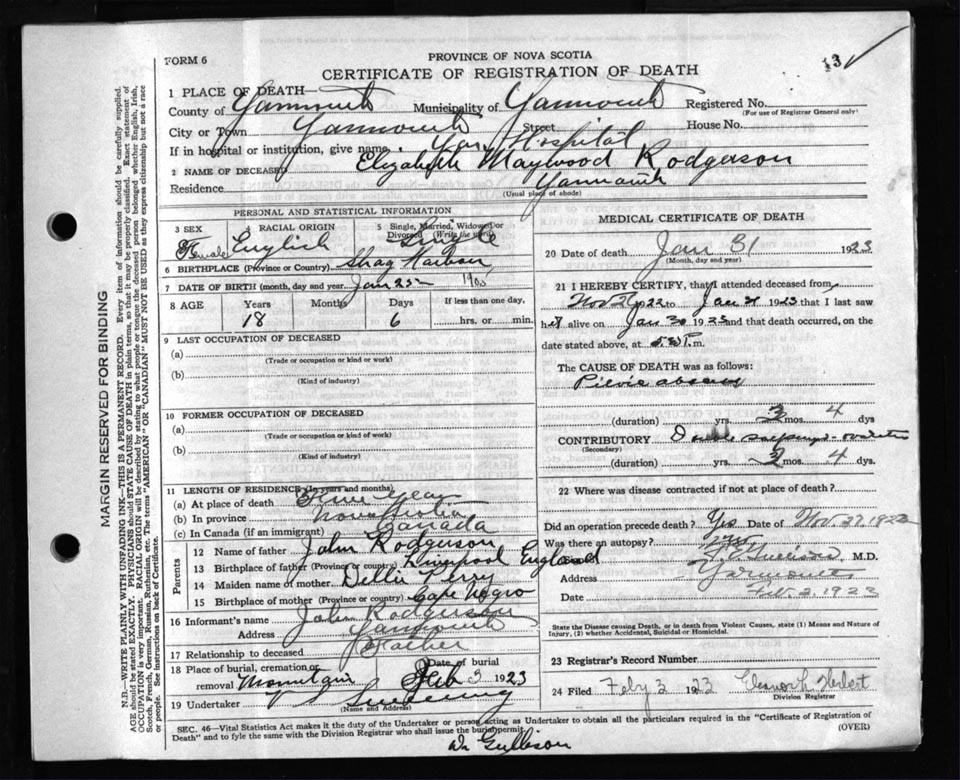 FORM 6
PROVINCE OF NOVA SCOTIA
CERTIFICATE OF REGISTRATION OF DEATH
3
1 PLACE OF DEATH—
County of Yarmouth Municipality of Yarmouth Registered No.
(For use of Registrar General only)
City or Town Yarmouth Street House No.
If in hospital or institution, give name Yar Hospital
2 NAME OF DECEASED Elizabeth Maywood Rodgerson
Residence Yarmouth
(Usual place of abode)
PERSONAL AND STATISTICAL INFORMATION
3 SEX 4 RACIAL ORIGIN 5 Single, Married, Widowed or Divorced (Write the word)
Female English Single
6 BIRTHPLACE (Province or Country) Shag Harbour
7 DATE OF BIRTH (month, day and year) Jan 25 1905
8 AGE Years Months Days If less than one day,
18 6 hrs. or min.
9 LAST OCCUPATION OF DECEASED
(a)
(Trade or occupation or kind or work)
(b)
(Kind of industry)
10 FORMER OCCUPATION OF DECEASED
(a)
(Trade or occupation or kind of work)
(b)
(Kind of industry)
11 LENGTH OF RESIDENCE (In years and months)
(a) At place of death Year
(b) In province Nova Scotia
(c) In Canada (if an immigrant) Canada
Parents
12 Name of father John Rodgerson
13 Birthplace of father (Province or country) Liverpool England
14 Maiden name of mother Dellie Perry
15 Birthplace of mother (Province or country) Cape Negro
16 Informant's name John Rodgerson
Address Yarmouth
17 Relationship to deceased Father
18 Place of burial, cremation or removal Mountain Date of burial Feb 3 1923
19 Undertaker V Sweeney
(Name and Address)
MEDICAL CERTIFICATE OF DEATH
20 Date of death Jan 31 1923
(Month, day and year)
21 I HEREBY CERTIFY, that I attended deceased from
Nov 26 1922 to Jan 31 1923 that I last saw
her alive on Jan 30 1923 and that death occurred, on
date stated above, at m.
The CAUSE OF DEATH was as follows:
Pelvic abscess
(duration) yrs. 3 mos. 4 dys
CONTRIBUTORY Double
(Secondary)
(duration) yrs. 2 mos. 4 dys.
22 Where was disease contracted if not at place of death?
Did an operation precede death? Yes Date of Nov. 27, 1922
Was there an autopsy?
M.D.
Address Yarmouth
Date Feb. 2, 1923
State the Disease causing Death, or in death from Violent Causes, state (1) Means and Nature of Injury, (2) whether Accidental, Suicidal or Homicidal.
23 Registrar's Record Number
24 Filed Feby 3 1923 Eleanor L. Herbert
Division Registrar
SEC. 46—Vital Statistics Act makes it the duty of the Undertaker or person acting as Undertaker to obtain all the particulars required in the "Certificate of Registration of
Death" and to fyle the same with the Division Registrar who shall issue the burial permit. (OVER)
Dr Gullison
MARGIN RESERVED FOR BINDING
N.B.—WRITE PLAINLY WITH UNFADING INK—THIS IS A PERMANENT RECORD. Every item of information should be carefully supplied.
AGE should be stated EXACTLY. PHYSICIANS should STATE CAUSE OF DEATH in plain terms, so that it may be properly classified. Exact statement of
OCCUPATION is very important. RACIAL ORIGIN will be described by stating to what people or tongue the deceased person belonged whether English, Irish,
Scotch, French, German, Russian, Ruthenian, etc. The terms "AMERICAN" OR "CANADIAN" MUST NOT BE USED as they express citizenship but not a race
or people. See instructions on back of Certificate.